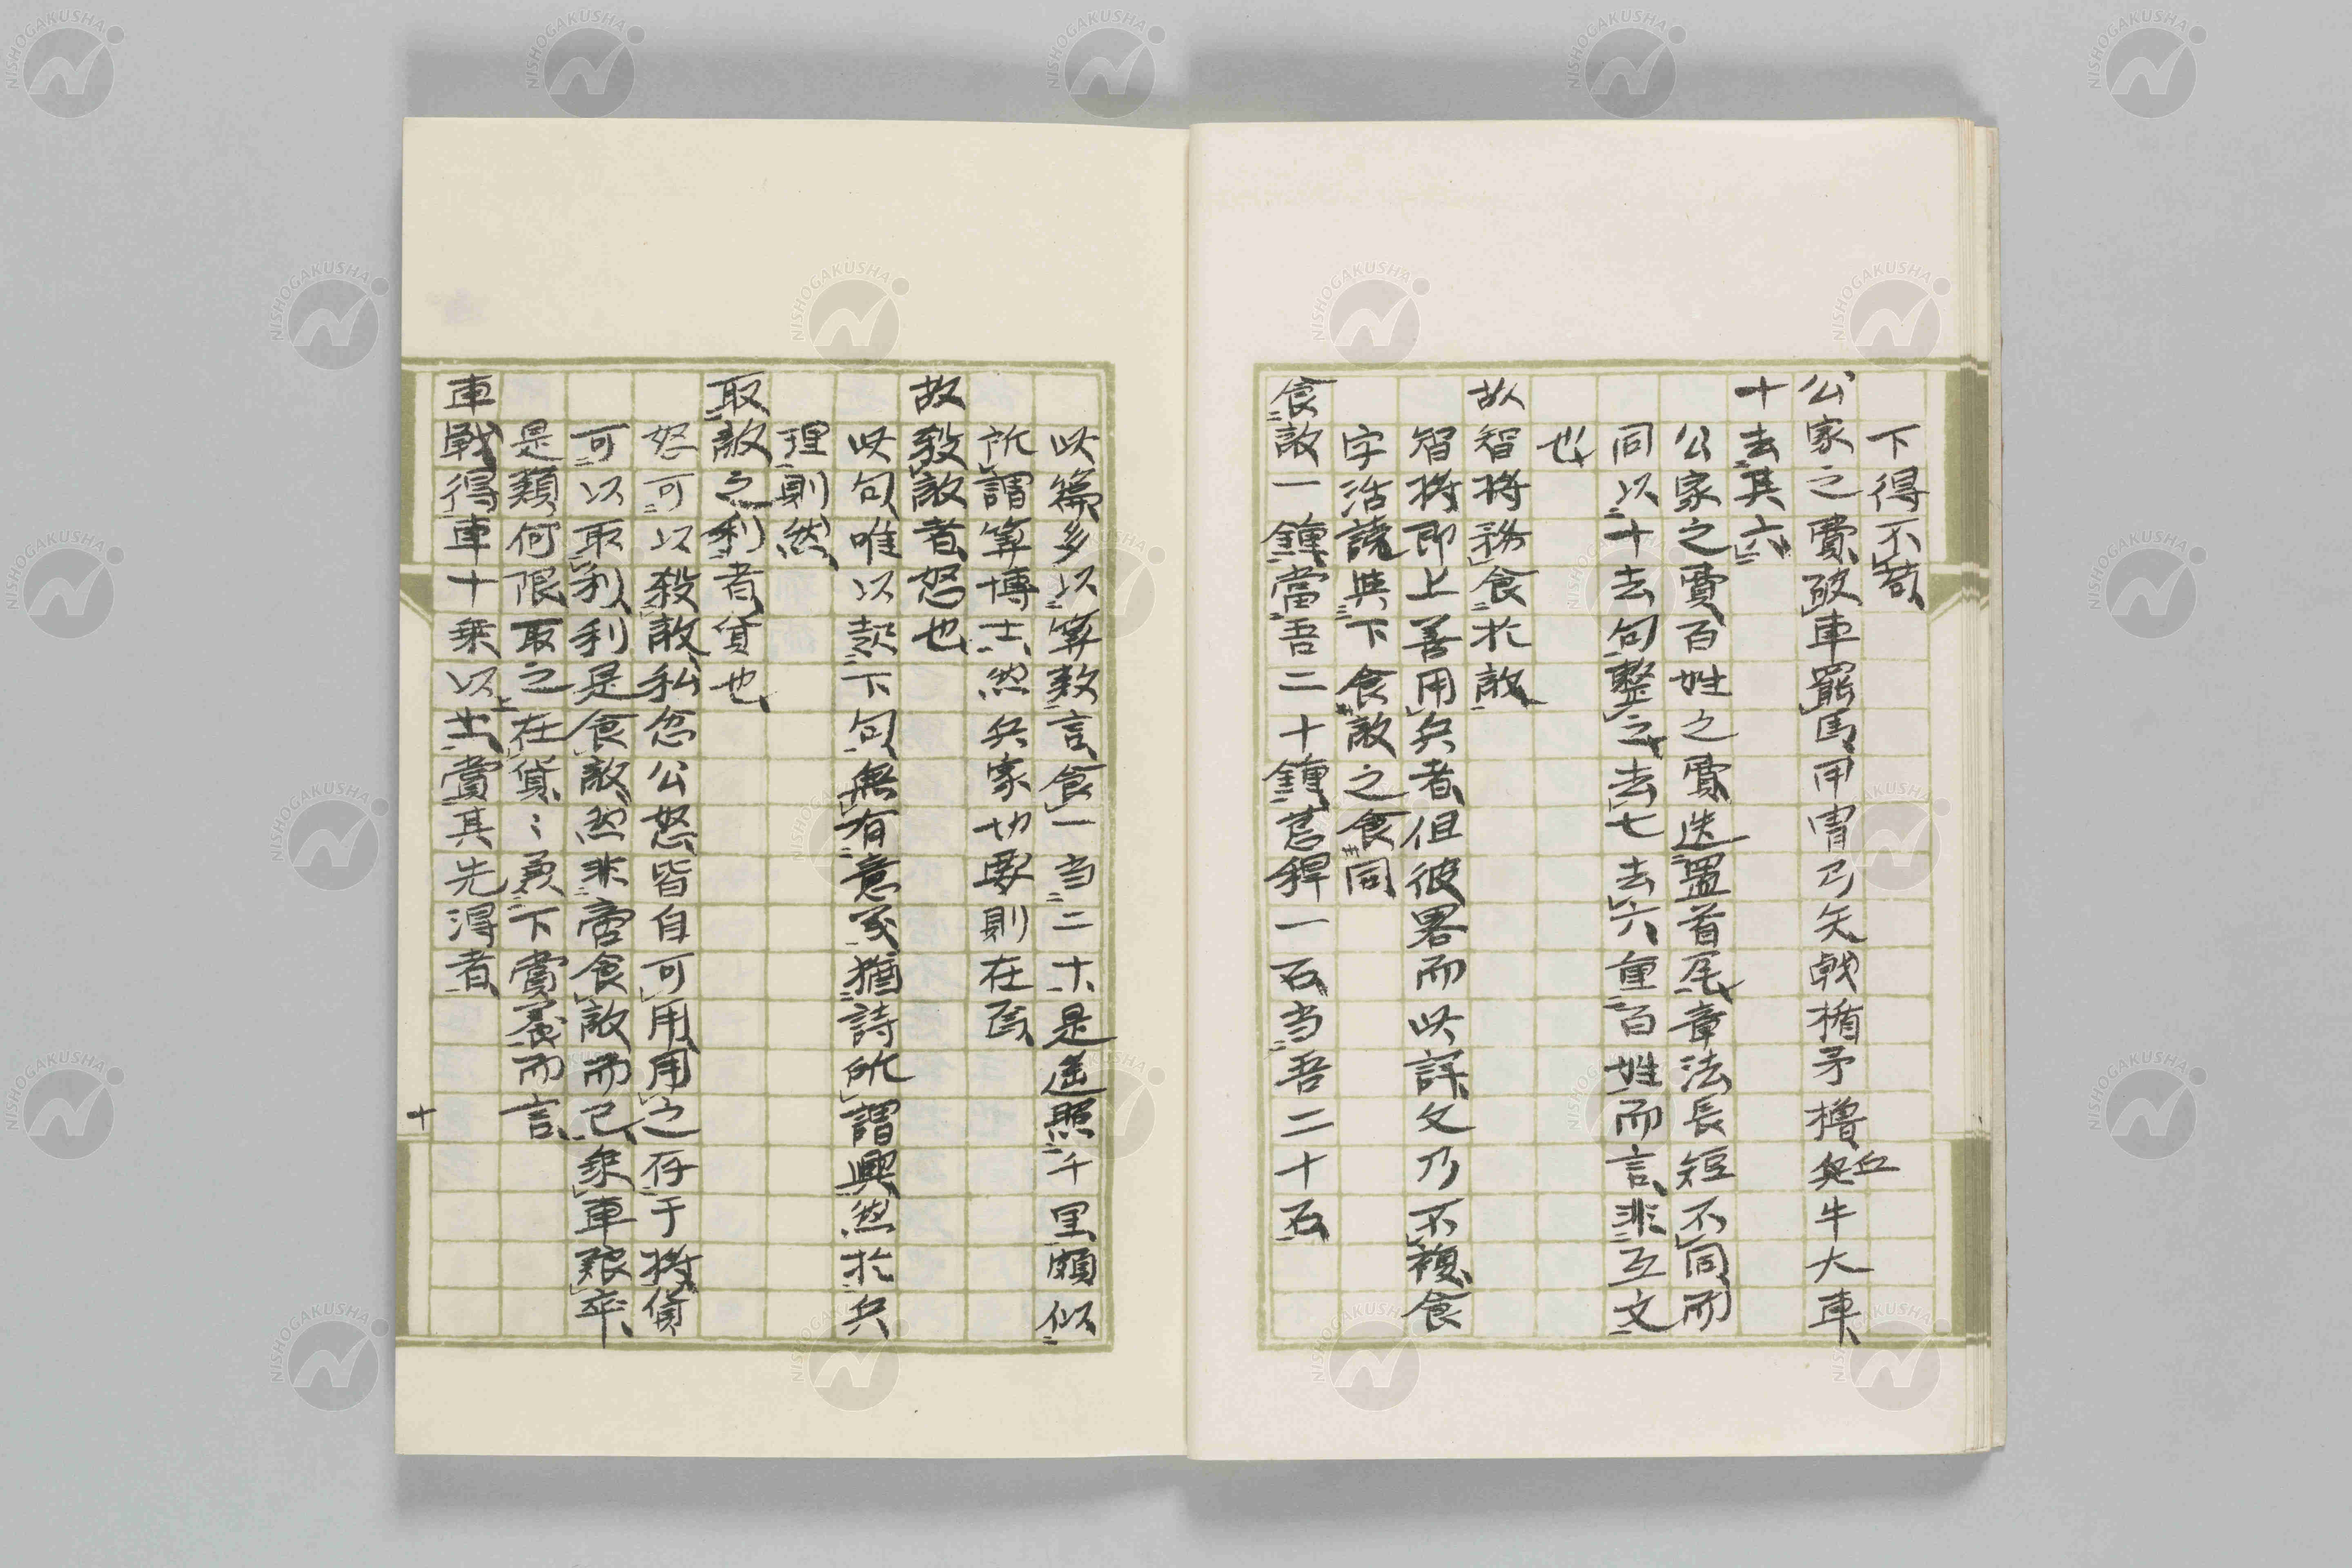 下得不苟
公家之費破車罷馬甲冑弓矢戟楯矛櫓丘牛大車
十去其六
公家之費百姓之費迭置首尾章法長短不同而
同以十去句整之去七去六重百姓而言非互文
也
故智将務食於敵
智将即上善用兵者但彼畧而此詳文乃不複食
字活読與下食敵之食同
食敵一鍾當吾二十鍾萁稈一石当吾二十石
此篇多以算数言食一当二十是遥照千里頗似
所謂算博士然兵家切要則在焉
故殺敵者怒也
此句唯以起下句無有意義猶詩所謂興然於兵
理則然
取敵之利者貨也
怒可以殺敵私忿公怒皆自可用用之存于将貨
可以取利利是食敵然非啻食敵而已乗車賑卒
是類何限取之上在貨〻兼下賞義而言
車戰得車十乗以上賞其先得者
十
NISHOGAKUSHA